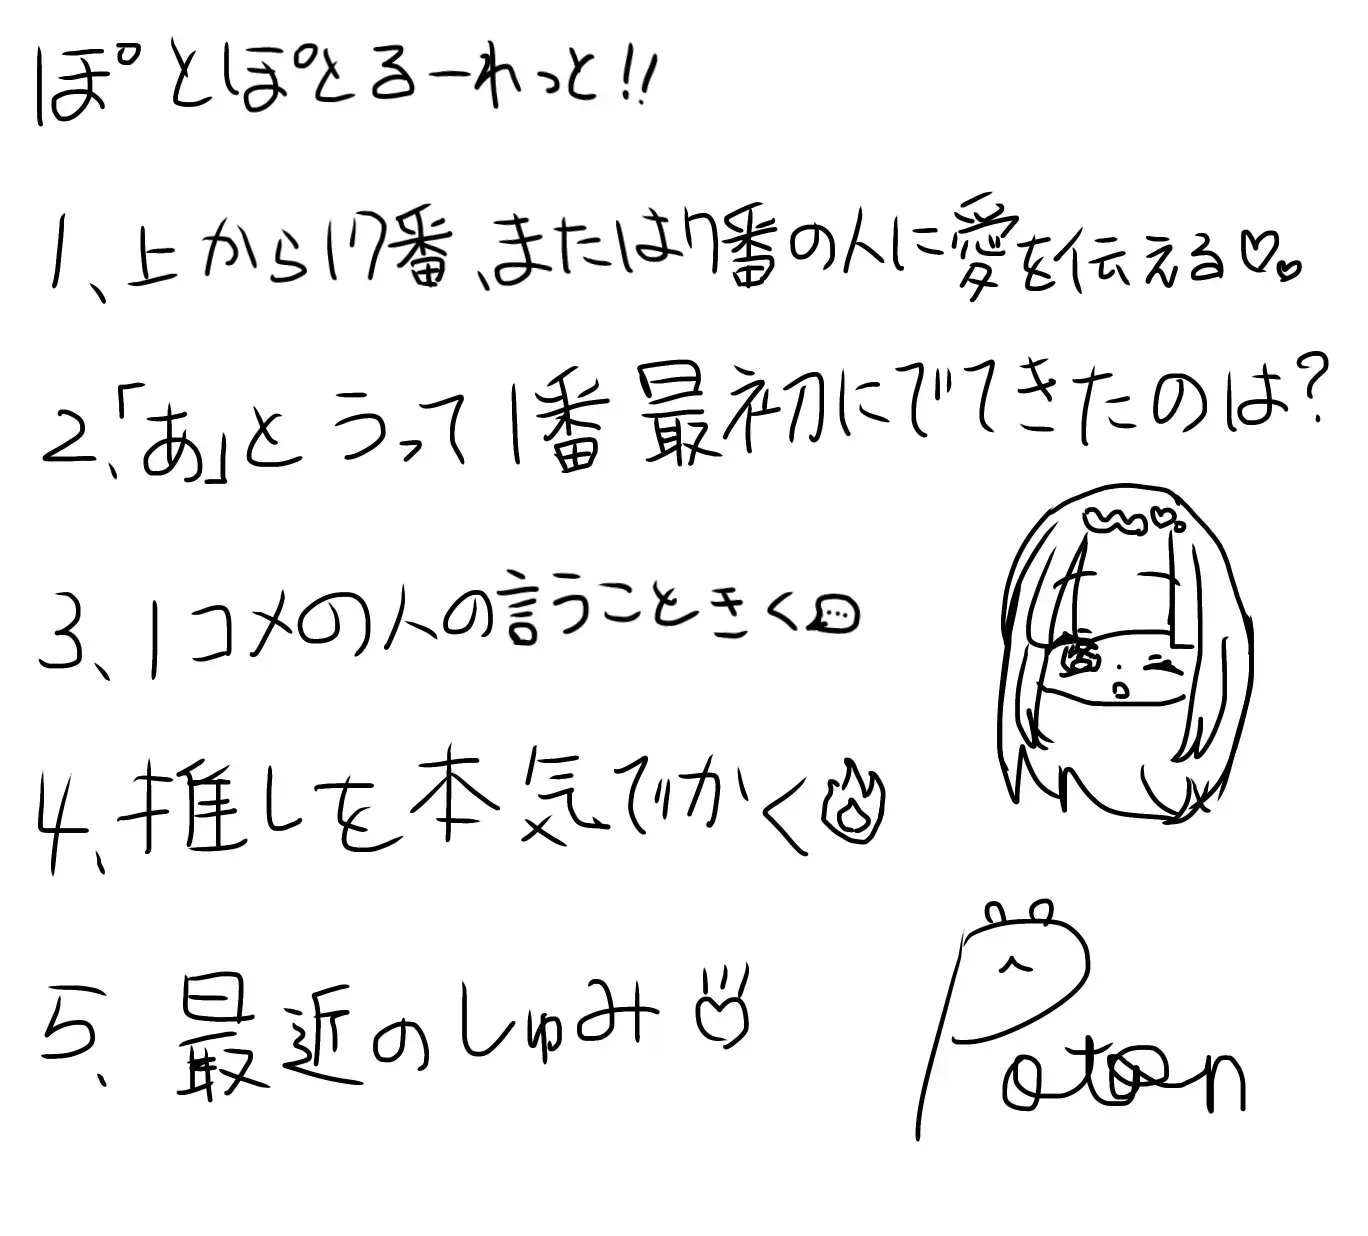 ぽとぽとるーれっと!!
1、上から17番、または7番の人に愛を伝える♡♡
2、「あ」とうって1番最初にでてきたのは?
3、1コメの人の言うこときく💬
4、推しを本気でかく🔥
5、最近のしゅみ
Poton